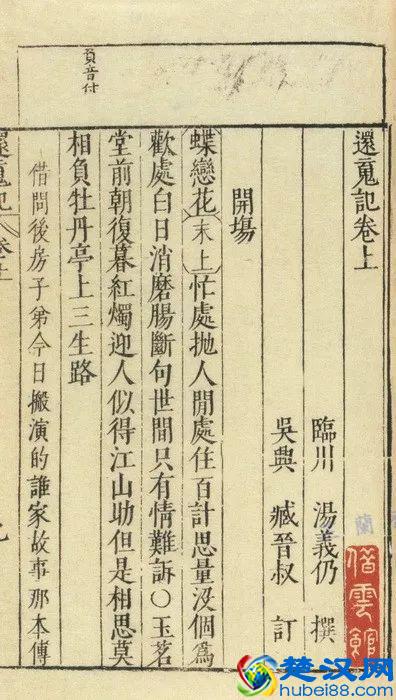 還䰟記卷上
臨川 湯義仍 撰
吳興 臧晉叔 訂
開塲
蝶戀花末上忙處拋人閒處住百計思量沒個爲
歡處白日消磨腸斷句世間只有情難訴○玉茗
堂前朝復暮紅燭迎人似得江山助但是相思莫
相負牡丹亭上三生路
借問後房子弟今日搬演的誰家故事那本傳
負音付
還䰟記
卷上
蘭
雲
楚汉网
hubei88.com